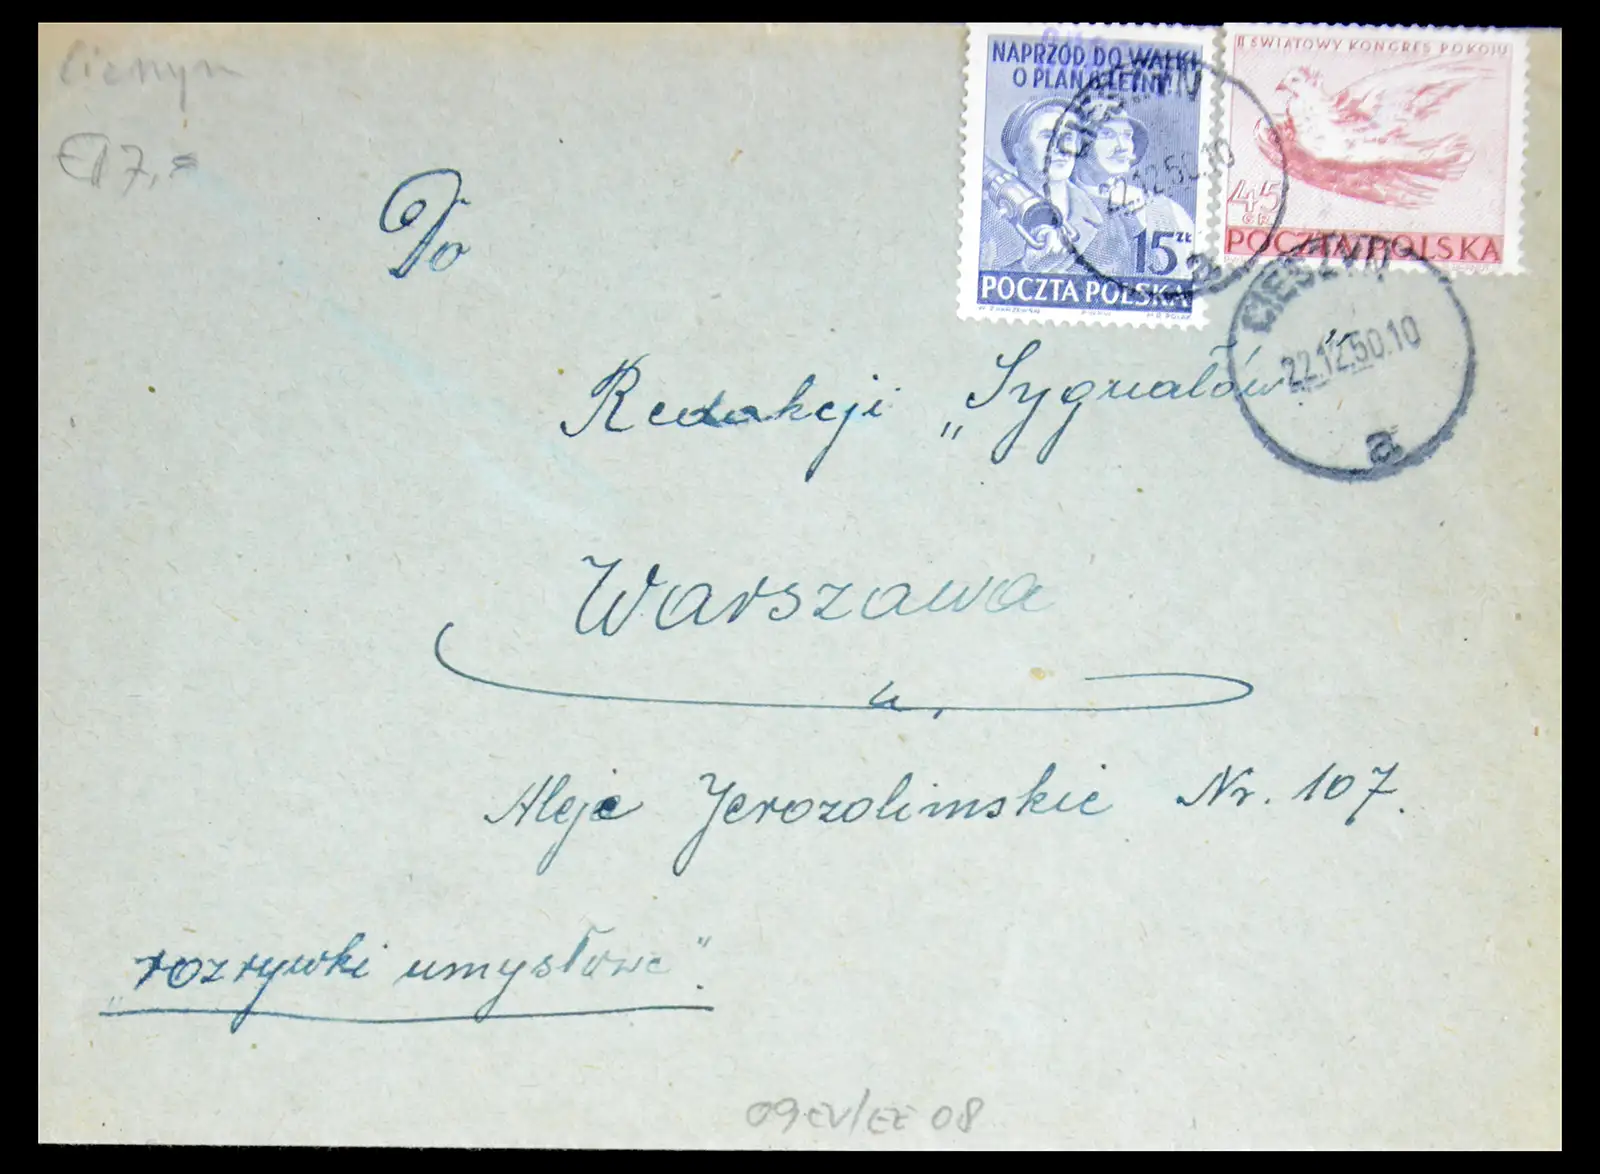 NAPRZÓD DO WALKI
O PLAN 6 LETNI
15 ZŁ
POCZTA POLSKA
II ŚWIATOWY KONGRES POKOJU
45
GR
POCZTA POLSKA
CIESZYN
22.12.50.10
a
CIESZYN
22.12.50.10
a
Do
Redakcji „Sygnałów"
Warszawa
Aleje Jerozolimskie Nr. 107.
„rozrywki umysłowe".